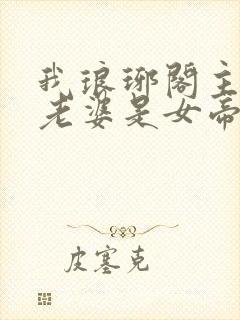 我琅琊阁主
老婆是女帝
皮塞克